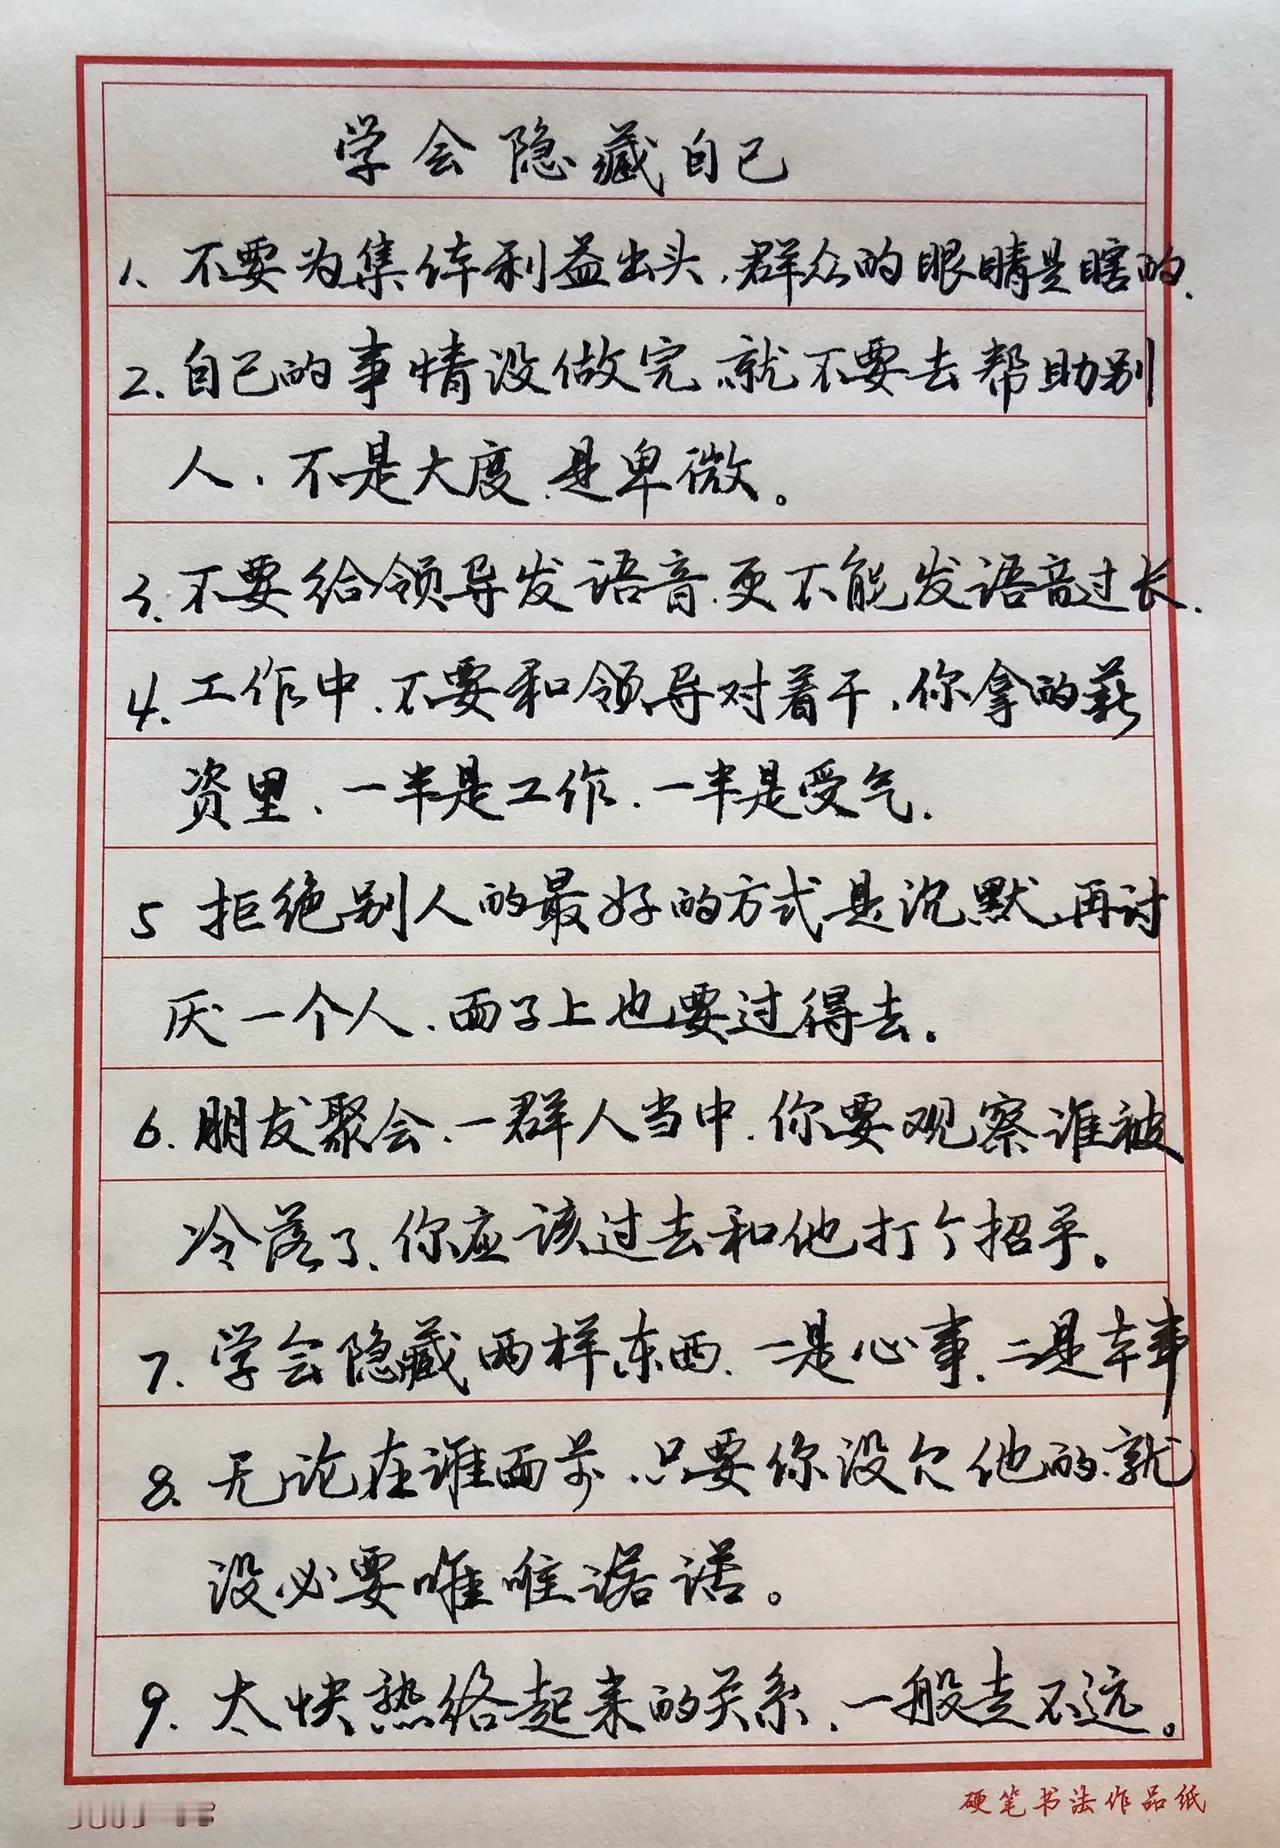 学会隐藏自己
1、不要为集体利益出头，群众的眼睛是瞎的.
2、自己的事情没做完、就不要去帮助别
人、不是大度、是卑微。
3、不要给领导发语音、更不能发语音过长.
4、工作中、不要和领导对着干，你拿的薪
资里、一半是工作、一半是受气.
5 拒绝别人的最好的方式是沉默、再讨
厌一个人、面子上也要过得去。
6、朋友聚会、一群人当中、你要观察谁被
冷落了、你应该过去和他打个招乎。
7、学会隐藏两样东西、一是心事、二是本事
8、无论在谁面前、只要你没欠他的、就
没必要唯唯诺诺。
9、太快热络起来的关系、一般走不远。
硬笔书法作品纸